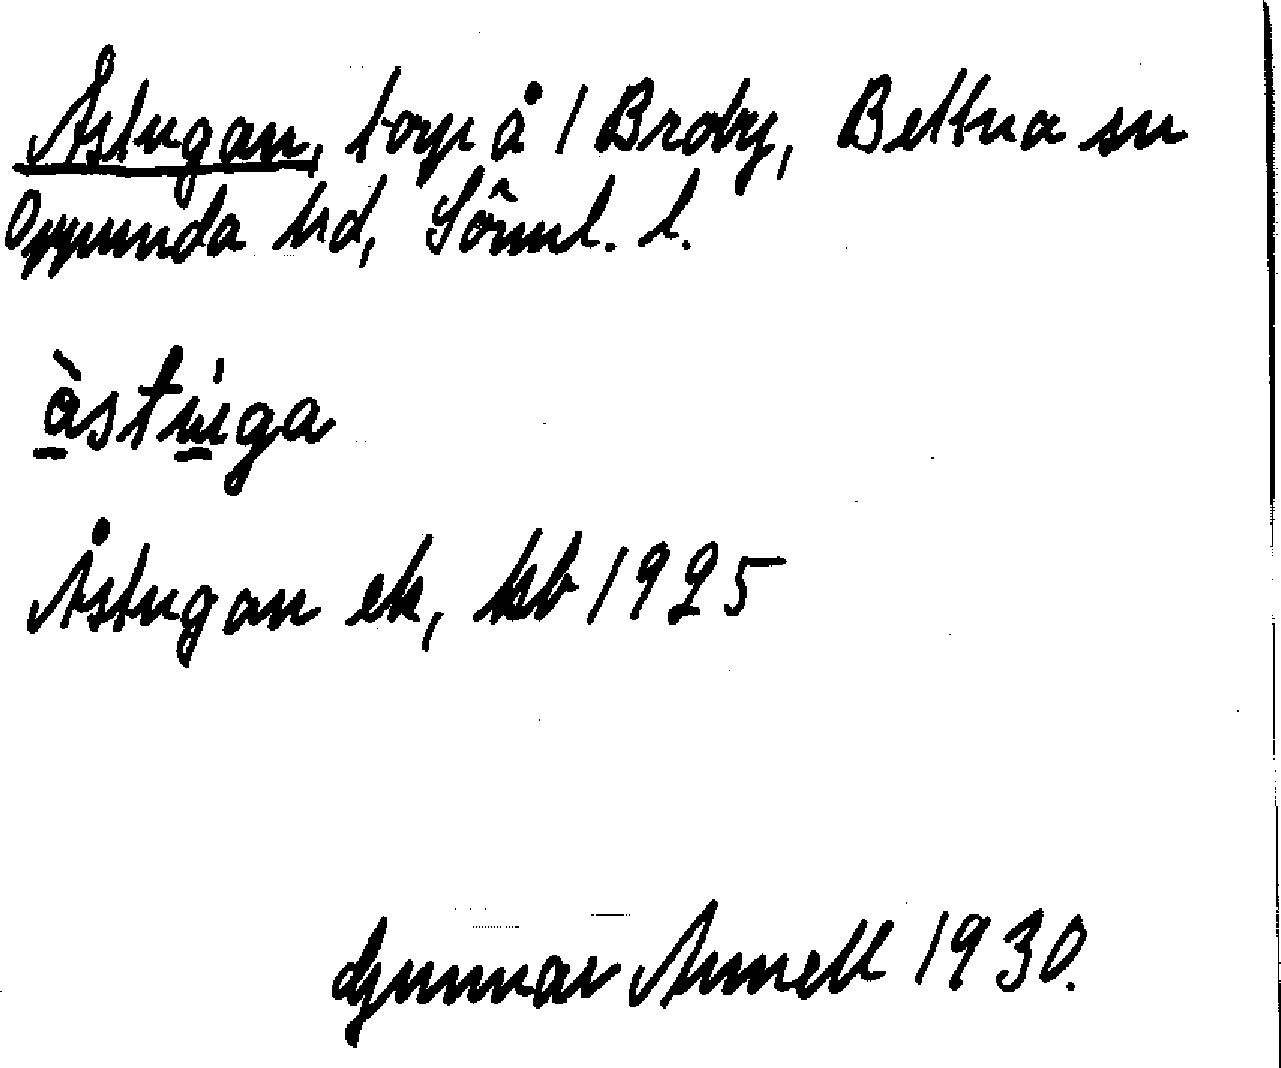 Åstugan, torp å 1 Broby, Bettna sn
Oppunda hd, Sörml. l.
àstúga
Åstugan ek, kb 1925
Gunnar Annell 1930.